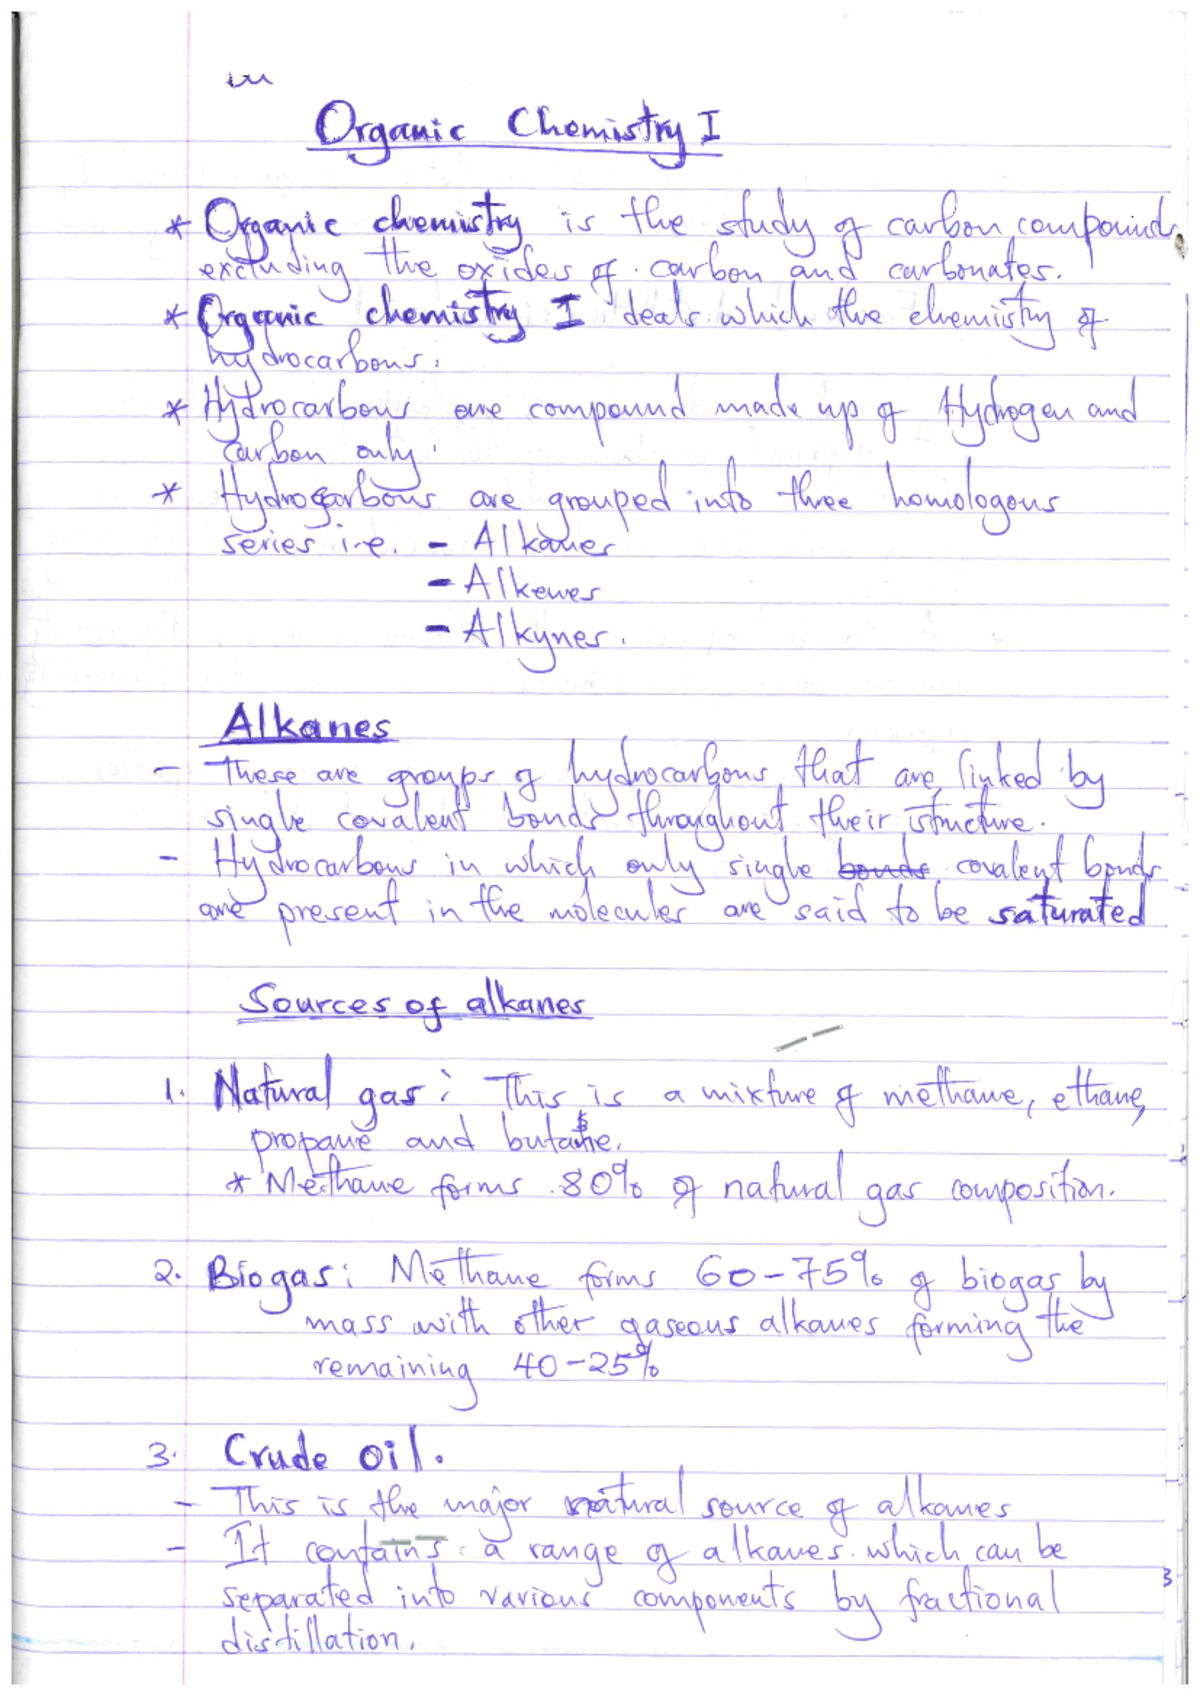 Organic Chemistry I
* Organic chemistry is the study of carbon compounds
excluding the oxides of carbon and carbonates.
* Organic chemistry I deals which the chemistry of
hydrocarbons.
* Hydrocarbons are compound made up of Hydrogen and
carbon only.
* Hydrocarbons are grouped into three homologous
series i.e. - Alkanes
- Alkenes
- Alkynes.
Alkanes
- These are groups of hydrocarbons that are linked by
single covalent bonds throughout their structure.
- Hydrocarbons in which only single bonds covalent bonds
are present in the molecules are said to be saturated
Sources of alkanes
1. Natural gas: This is a mixture of methane, ethane,
propane and butane.
* Methane forms 80% of natural gas composition.
2. Biogas: Methane forms 60-75% of biogas by
mass with other gaseous alkanes forming the
remaining 40-25%
3. Crude oil.
- This is the major natural source of alkanes
- It contains a range of alkanes which can be
separated into various components by fractional
distillation.